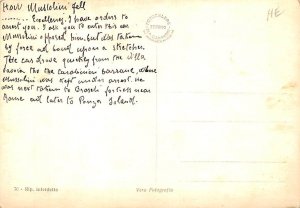 How Mussolini fell
........ Excellency, I have orders to
arrest you. I ask you to enter this car
Mussolini opposed him, but was taken
by force and bound upon a stretcher.
The car drove quickly from the villa
to the carabinieri barracks, where
Mussolini was kept under arrest. He
was next taken to fortress near
Rome and later to Ponza Island.
HE
70 - Rip. interdetta
Vera Fotografia